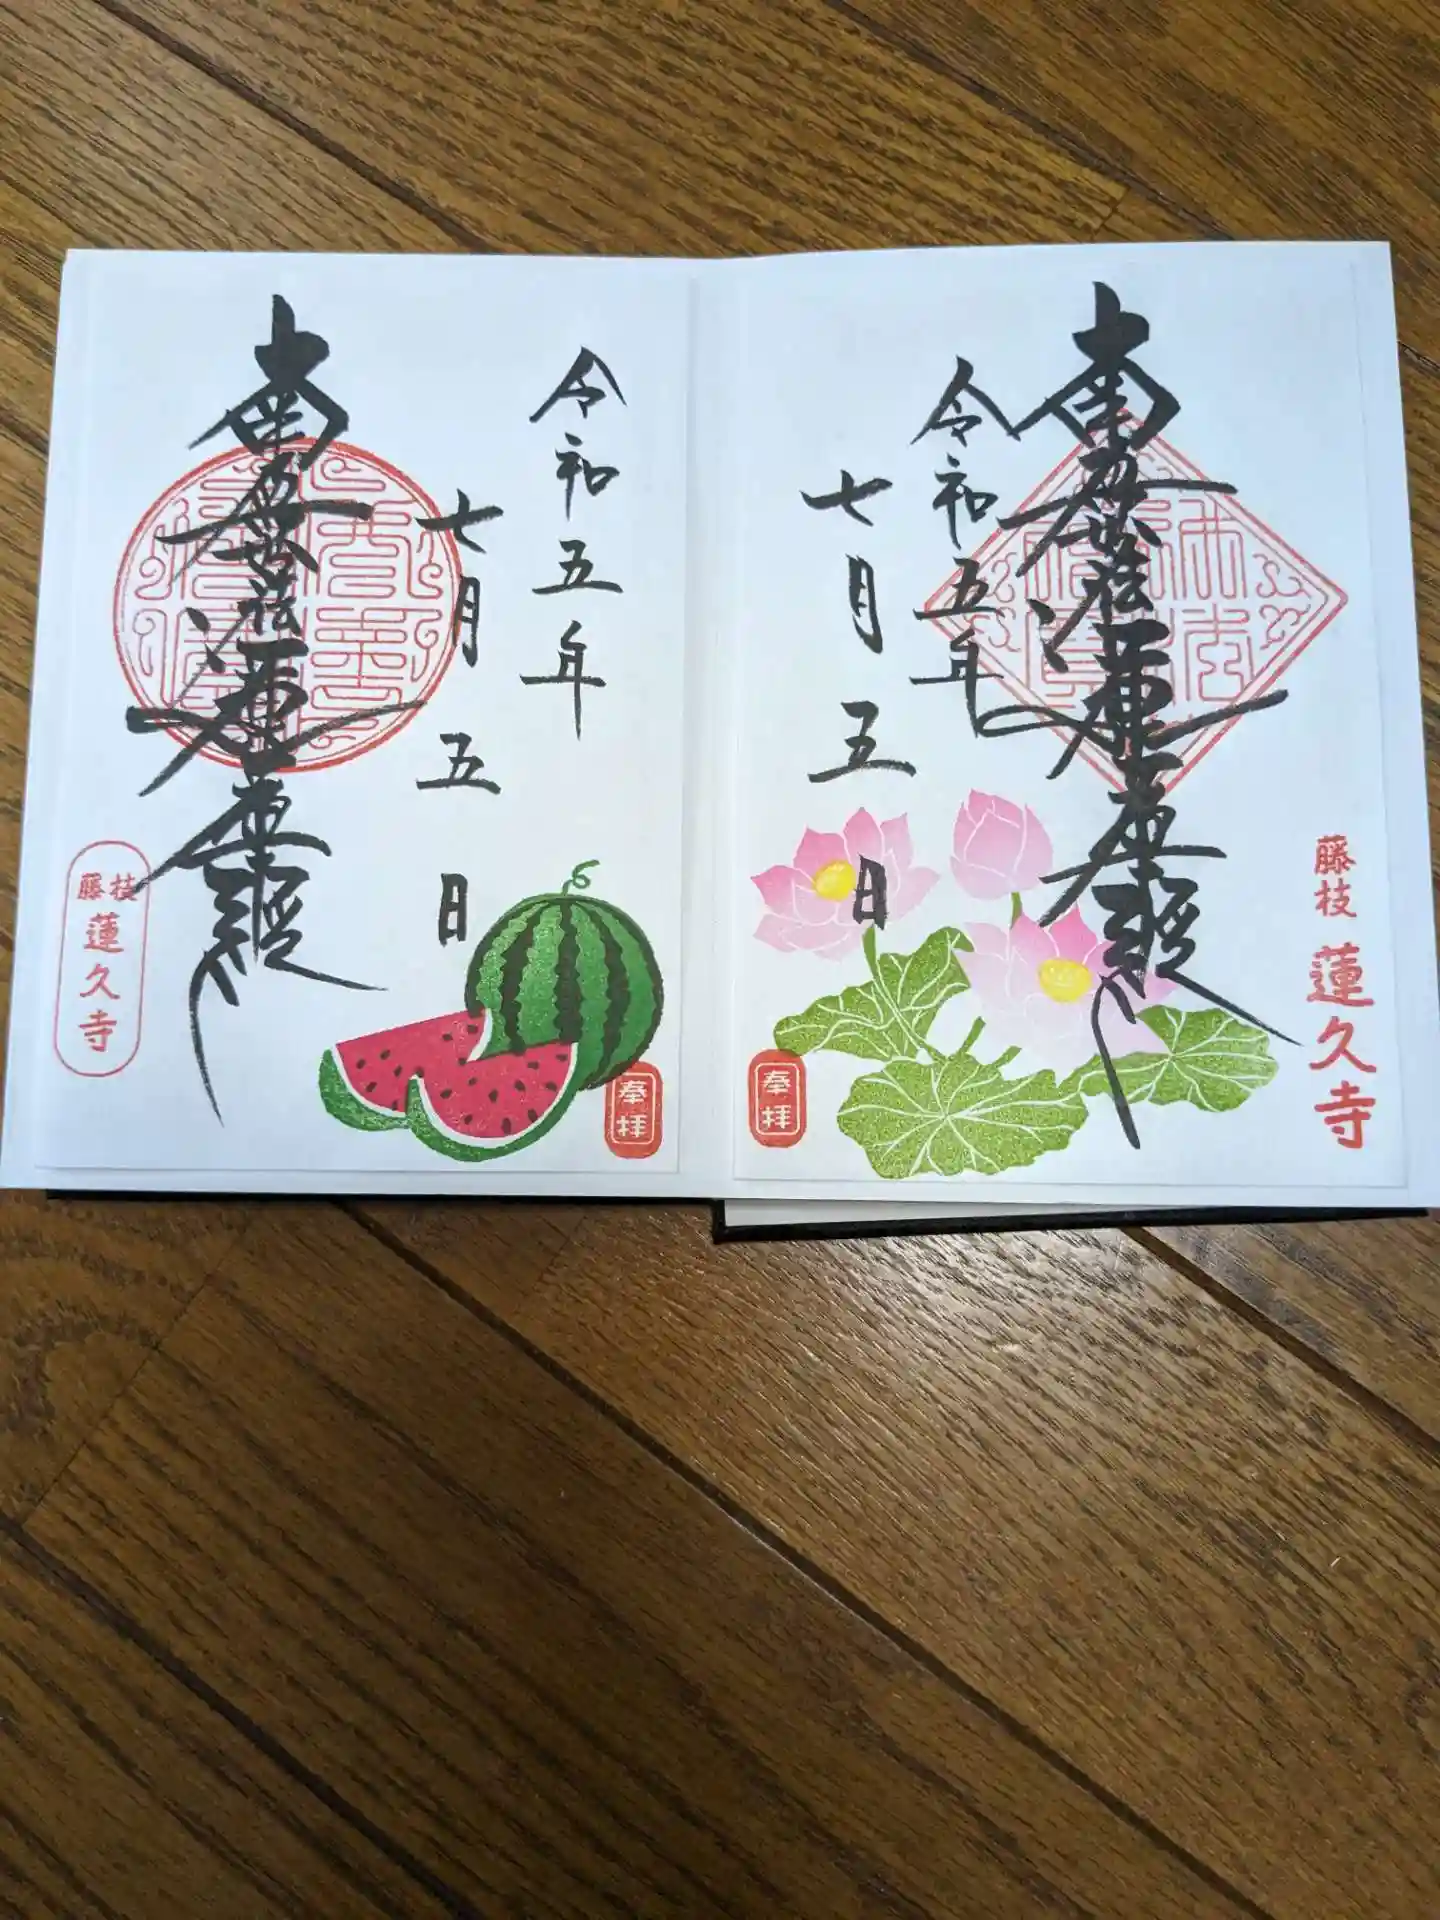 藤枝
蓮久寺
南無妙法蓮華経
令和五年
七月五日
奉拝
令和五年
七月五日
奉拝
南無妙法蓮華経
藤枝
蓮久寺